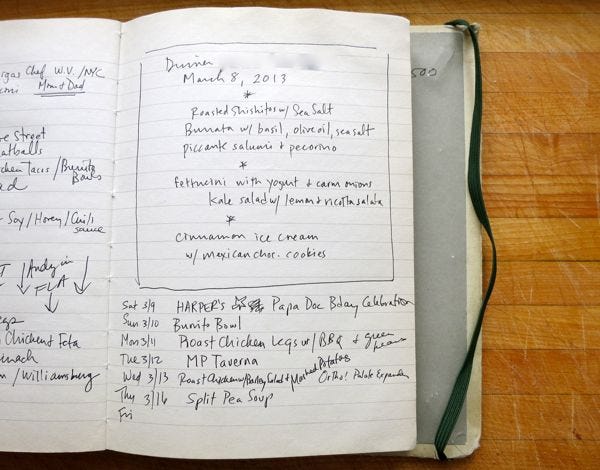 Chef W.V. / NYC
Mom + Dad
Street
Tacos / Burrito Bowls
Soy / Honey / Chili sauce
Andy in FLA
Chicken + Feta
/ Williamsburg
Dinner
March 8, 2013
*
Roasted Shishitos w/ Sea Salt
Burrata w/ basil, olive oil, sea salt
piccante salumi + pecorino
*
fettucini with yogurt + caram onions
kale salad w/ lemon + ricotta salata
*
cinnamon ice cream
w/ mexican choc. cookies
500
Sat 3/9 HARPER'S Papa Doc Bday Celebration
Sun 3/10 Burrito Bowl
Mon 3/11 Roast Chicken Legs w/ BBQ + green beans
Tue 3/12 MP Taverna
Wed 3/13 Roast Chicken w/ Barley Salad + Mashed Potatoes Ortho! Palate Expander
Thy 3/14 Split Pea Soup
Fri